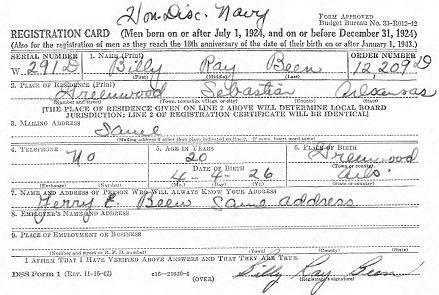 Hon. Disc. Navy
FORM APPROVED
Budget Bureau No. 33-R012-42
REGISTRATION CARD (Men born on or after July 1, 1924, and on or before December 31, 1924)
(Also for the registration of men as they reach the 18th anniversary of the date of their birth on or after January 1, 1943.)
SERIAL NUMBER 1. NAME (Print) ORDER NUMBER
W 291 D Billy Ray Been 12,209 D
(First) (Middle) (Last)
2. PLACE OF RESIDENCE (Print)
Greenwood Sebastian Arkansas
(Number and street) (Town, township, village, or city) (County) (State)
[THE PLACE OF RESIDENCE GIVEN ON LINE 2 ABOVE WILL DETERMINE LOCAL BOARD
JURISDICTION; LINE 2 OF REGISTRATION CERTIFICATE WILL BE IDENTICAL]
3. MAILING ADDRESS
Same
[Mailing address if other than place indicated on line 2. If same, insert word same]
4. TELEPHONE 5. AGE IN YEARS 6. PLACE OF BIRTH
No 20 Greenwood
DATE OF BIRTH (Town or county)
4-4-26 Ark.
(Exchange) (Number) (Mo.) (Day) (Yr.) (State or country)
7. NAME AND ADDRESS OF PERSON WHO WILL ALWAYS KNOW YOUR ADDRESS
E. Been Same address
8. EMPLOYER'S NAME AND ADDRESS
9. PLACE OF EMPLOYMENT OR BUSINESS
(Number and street or R. F. D. number) (Town) (County) (State)
I AFFIRM THAT I HAVE VERIFIED ABOVE ANSWERS AND THAT THEY ARE TRUE.
DSS Form 1 (Rev. 11-16-42) (OVER) Billy Ray Been
(Registrant's signature)